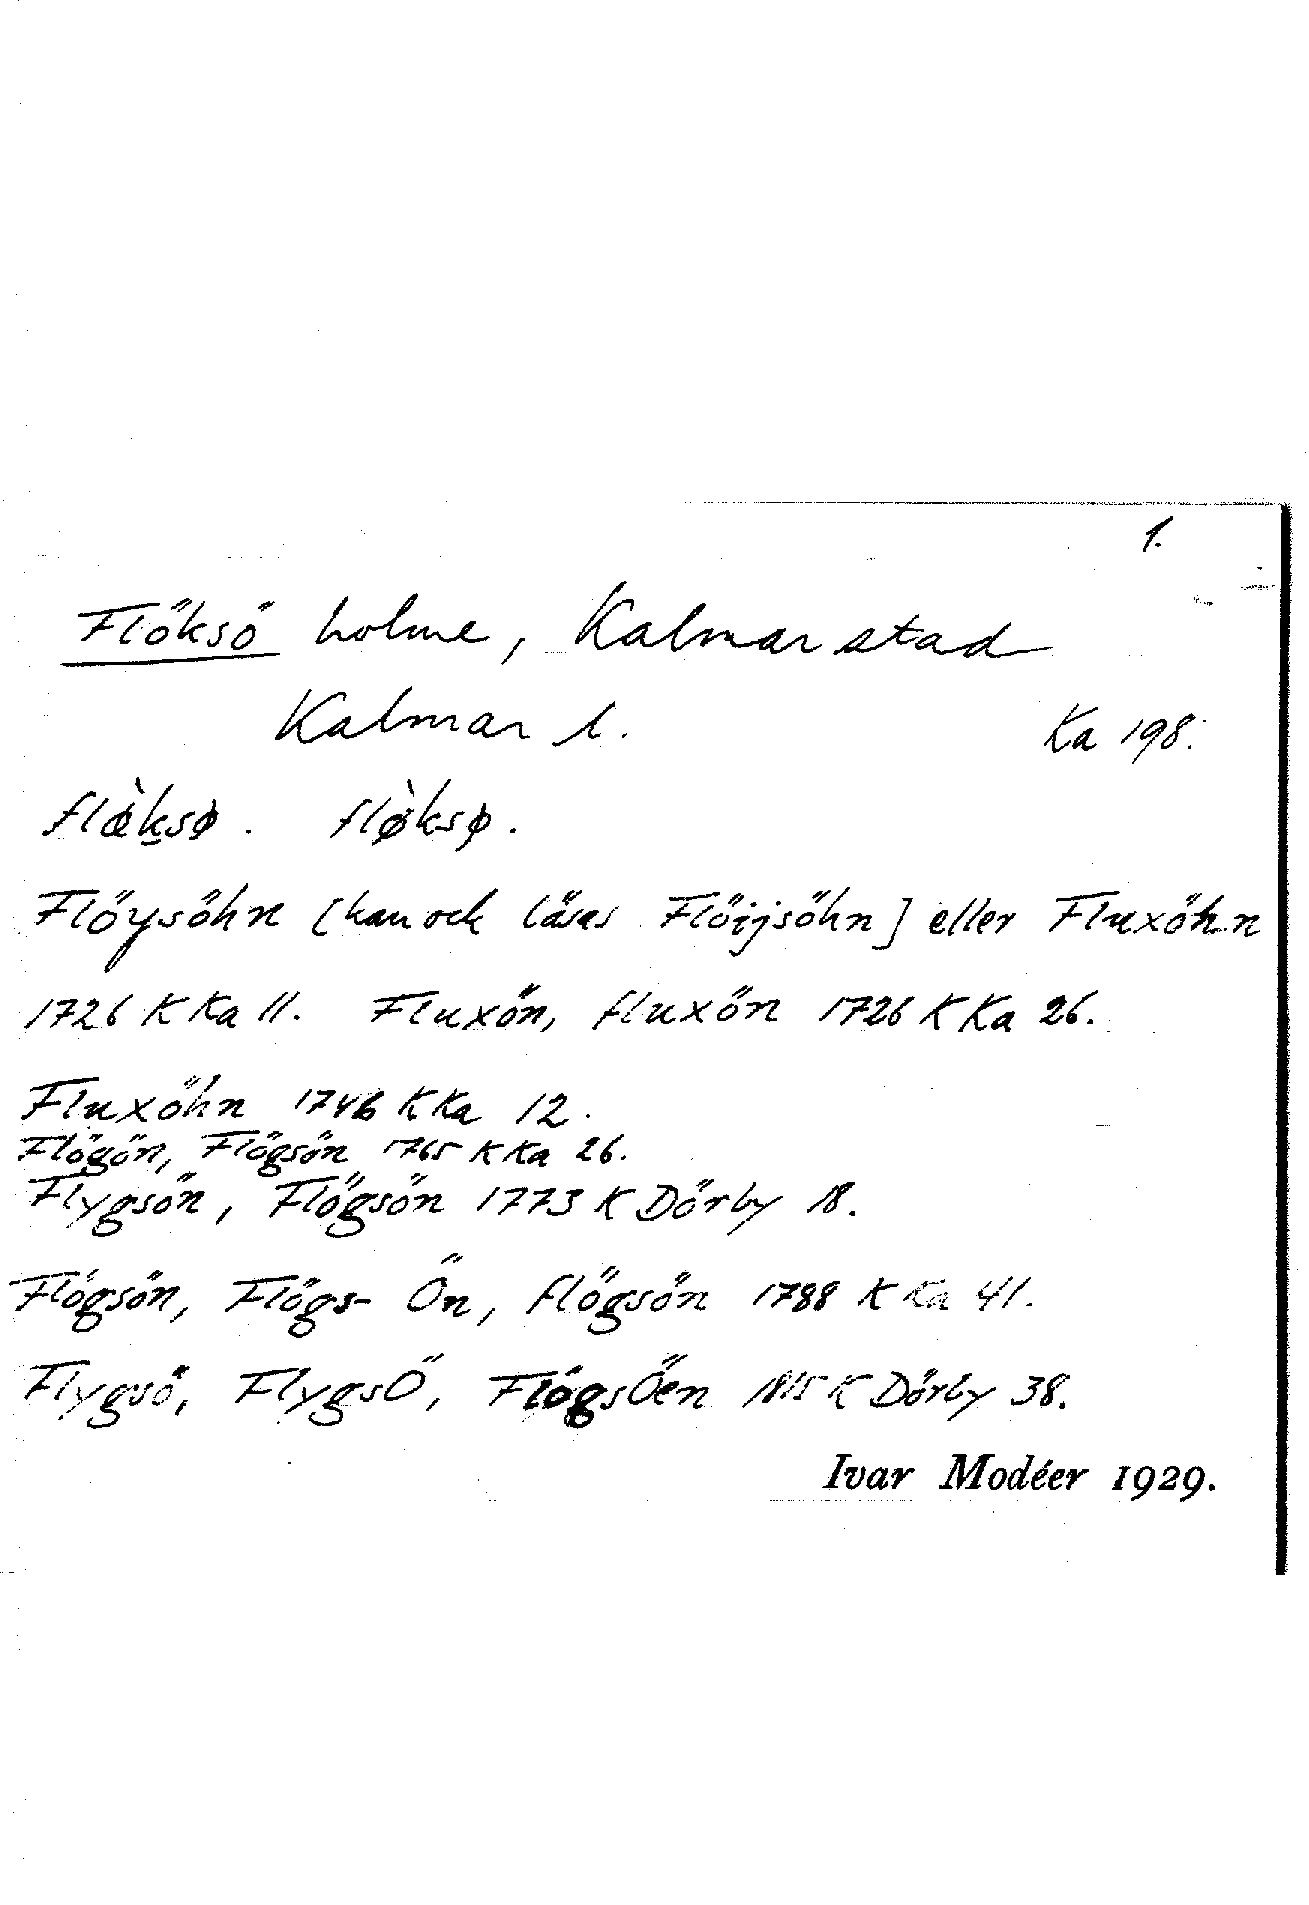 1.
Flöksö holme, Kalmar stad
Kalmar l. Ka 198.
flø̀ksø. flø̀ksø.
Flöysöhn [kan ock läsas Flöijsöhn] eller Fluxöhn
1726 K Ka 11. Fluxön, fluxön 1726 K Ka 26.
Fluxöhn 1746 K Ka 12.
Flögön, Flögsön 1765 K Ka 26.
Flygsön, Flögsön 1773 K Dörby 18.
Flögsön, Flögs- Ön, flögsön 1788 K Ka 41.
Flygsö, FlygsÖ, FlögsÖen 1815 K Dörby 38.
Ivar Modéer 1929.